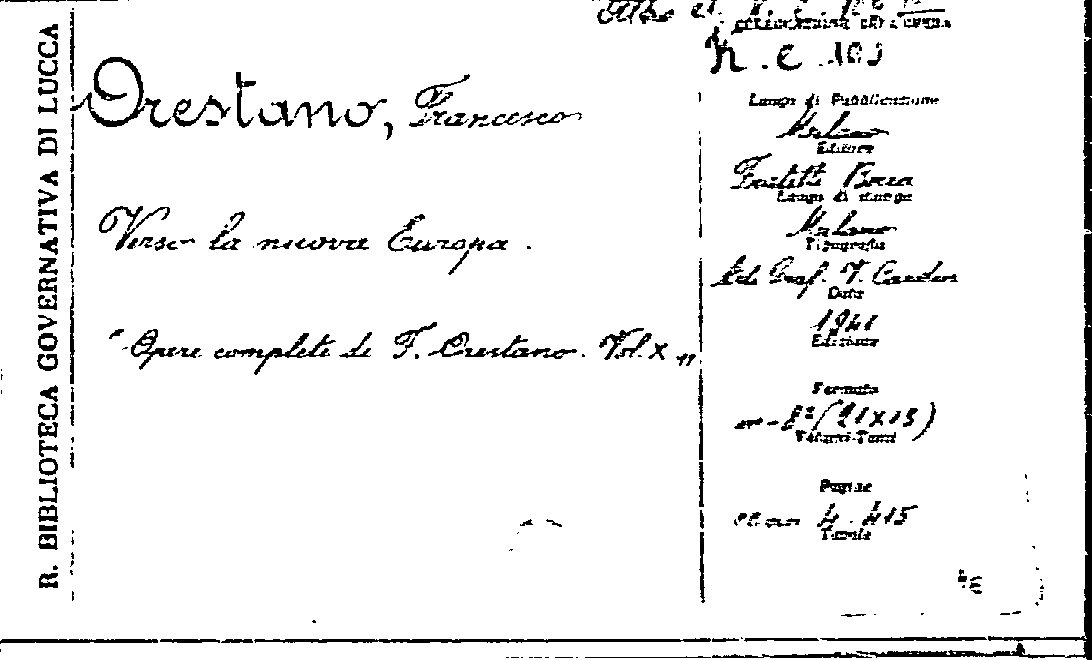 R. BIBLIOTECA GOVERNATIVA DI LUCCA
COLLOCAZIONE DELL'OPERA
Orestano, Francesco
Verso la nuova Europa.
"Opere complete di F. Orestano. Vol. X"
Luogo di Pubblicazione
Milano
Editore
Fratelli Bocca
Luogo di stampa
Milano
Tipografia
Graf. V. Cardin
Data
1941
Edizione
Formato
in-8º (21x15)
Volumi-Tomi
Pagine
4. 415
Tavole